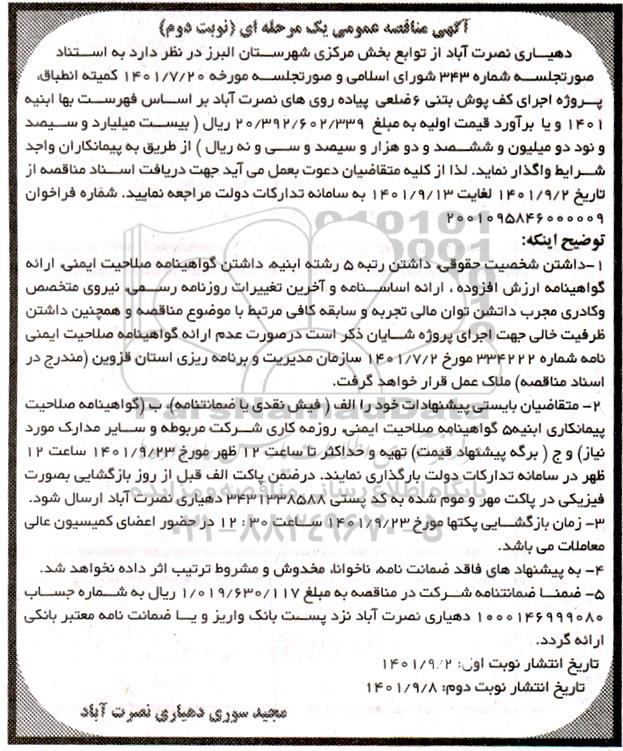 آگهی مناقصه عمومی یک مرحله ای (نوبت دوم)
دهیاری نصرت آباد از توابع بخش مرکزی شهرستان البرز در نظر دارد به استناد
صورتجلسه شماره ۳۴۳ شورای اسلامی و صورتجلسه مورخه ۱۴۰۱/۷/۲۰ کمیته انطباق،
پروژه اجرای کف پوش بتنی ۶ضلعی پیاده روی های نصرت آباد بر اساس فهرست بها ابنیه
۱۴۰۱ و با برآورد قیمت اولیه به مبلغ ۲۰/۳۹۲/۶۰۲/۳۳۹ ریال ( بیست میلیارد و سیصد
و نود دو میلیون و ششصد و دو هزار و سیصد و سی و نه ریال ) از طریق به پیمانکاران واجد
شرایط واگذار نماید. لذا از کلیه متقاضیان دعوت بعمل می آید جهت دریافت اسناد مناقصه از
تاریخ ۱۴۰۱/۹/۲ لغایت ۱۴۰۱/۹/۱۳ به سامانه تدارکات دولت مراجعه نمایید. شماره فراخوان
۲۰۰۱۰۹۵۸۴۶۰۰۰۰۰۹
توضیح اینکه:
۱-داشتن شخصیت حقوقی، داشتن رتبه ۵ رشته ابنیه، داشتن گواهینامه صلاحیت ایمنی، ارائه
گواهینامه ارزش افزوده ، ارائه اساسنامه و آخرین تغییرات روزنامه رسمی، نیروی متخصص
وکادری مجرب داتشن توان مالی تجربه و سابقه کافی مرتبط با موضوع مناقصه و همچنین داشتن
ظرفیت خالی جهت اجرای پروژه شایان ذکر است درصورت عدم ارائه گواهینامه صلاحیت ایمنی
نامه شماره ۳۳۴۲۲۲ مورخ ۱۴۰۱/۷/۲ سازمان مدیریت و برنامه ریزی استان قزوین (مندرج در
اسناد مناقصه) ملاک عمل قرار خواهد گرفت.
۲- متقاضیان بایستی پیشنهادات خود را الف ( فیش نقدی یا ضمانتنامه)، ب (گواهینامه صلاحیت
پیمانکاری ابنیه۵ گواهینامه صلاحیت ایمنی، روزمه کاری شرکت مربوطه و سایر مدارک مورد
نیاز) و ج ( برگه پیشنهاد قیمت) تهیه و حداکثر تا ساعت ۱۲ ظهر مورخ ۱۴۰۱/۹/۲۳ ساعت ۱۲
ظهر در سامانه تدارکات دولت بارگذاری نمایند. درضمن پاکت الف قبل از روز بازگشایی بصورت
فیزیکی در پاکت مهر و موم شده به کد پستی ۳۴۳۱۳۳۸۵۸۸ دهیاری نصرت آباد ارسال شود.
۳- زمان بازگشایی پکتها مورخ ۱۴۰۱/۹/۲۳ ساعت ۱۲:۳۰ در حضور اعضای کمیسیون عالی
معاملات می باشد.
۴- به پیشنهاد های فاقد ضمانت نامه، ناخوانا، مخدوش و مشروط ترتیب اثر داده نخواهد شد.
۵- ضمنا ضمانتنامه شرکت در مناقصه به مبلغ ۱/۰۱۹/۶۳۰/۱۱۷ ریال به شماره حساب
۱۰۰۰۱۴۶۹۹۹۰۸۰ دهیاری نصرت آباد نزد پست بانک واریز و یا ضمانت نامه معتبر بانکی
ارائه گردد.
تاریخ انتشار نوبت اول: ۱۴۰۱/۹/۲
تاریخ انتشار نوبت دوم: ۱۴۰۱/۹/۸
مجید سوری دهیاری نصرت آباد
ParsNamadData
پایگاه اطلاع رسانی مناقصه و مزایده
۰۲۱-۸۸۳۴۹۶۷۰-۵